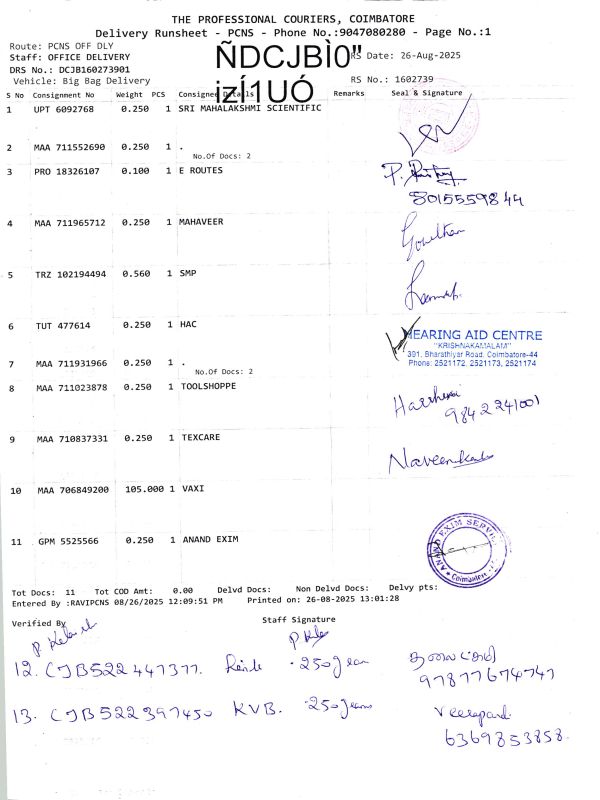 THE PROFESSIONAL COURIERS, COIMBATORE
Delivery Runsheet - PCNS - Phone No.:9047080280 - Page No.:1
Route: PCNS OFF DLY
Staff: OFFICE DELIVERY
RS Date: 26-Aug-2025
ÑDCJBÌ0"
DRS No.: DCJB160273901
Vehicle: Big Bag Delivery
RS No.: 1602739
izÍ1UÓ
S No Consignment No Weight PCS Consignee Details Remarks Seal & Signature
1 UPT 6092768 0.250 1 SRI MAHALAKSHMI SCIENTIFIC
2 MAA 711552690 0.250 1 .
No.Of Docs: 2
3 PRO 18326107 0.100 1 E ROUTES
8015559844
4 MAA 711965712 0.250 1 MAHAVEER
Gowtham
5 TRZ 102194494 0.560 1 SMP
6 TUT 477614 0.250 1 HAC
HEARING AID CENTRE
"KRISHNAKAMALAM"
391, Bharathiyar Road, Coimbatore-44
Phone: 2521172, 2521173, 2521174
7 MAA 711931966 0.250 1 .
No.Of Docs: 2
8 MAA 711023878 0.250 1 TOOLSHOPPE
9842241001
9 MAA 710837331 0.250 1 TEXCARE
10 MAA 706849200 105.000 1 VAXI
11 GPM 5525566 0.250 1 ANAND EXIM
ANAND EXIM SERVICES
Coimbatore
Tot Docs: 11 Tot COD Amt: 0.00 Delvd Docs: Non Delvd Docs: Delvy pts:
Entered By :RAVIPCNS 08/26/2025 12:09:51 PM Printed on: 26-08-2025 13:01:28
Verified By Staff Signature
12. CJB522447377. .250gram
97877674747
13. CJB522397450 KVB. .250grams
6369853858